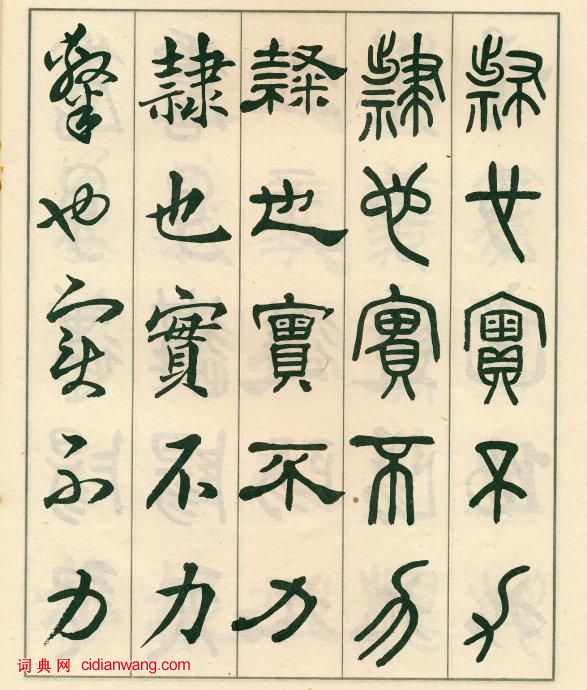 隸也實不力
隸也實不力
隸也實不力
隸也實不力
隸也實不力
词典网 cidianwang.com